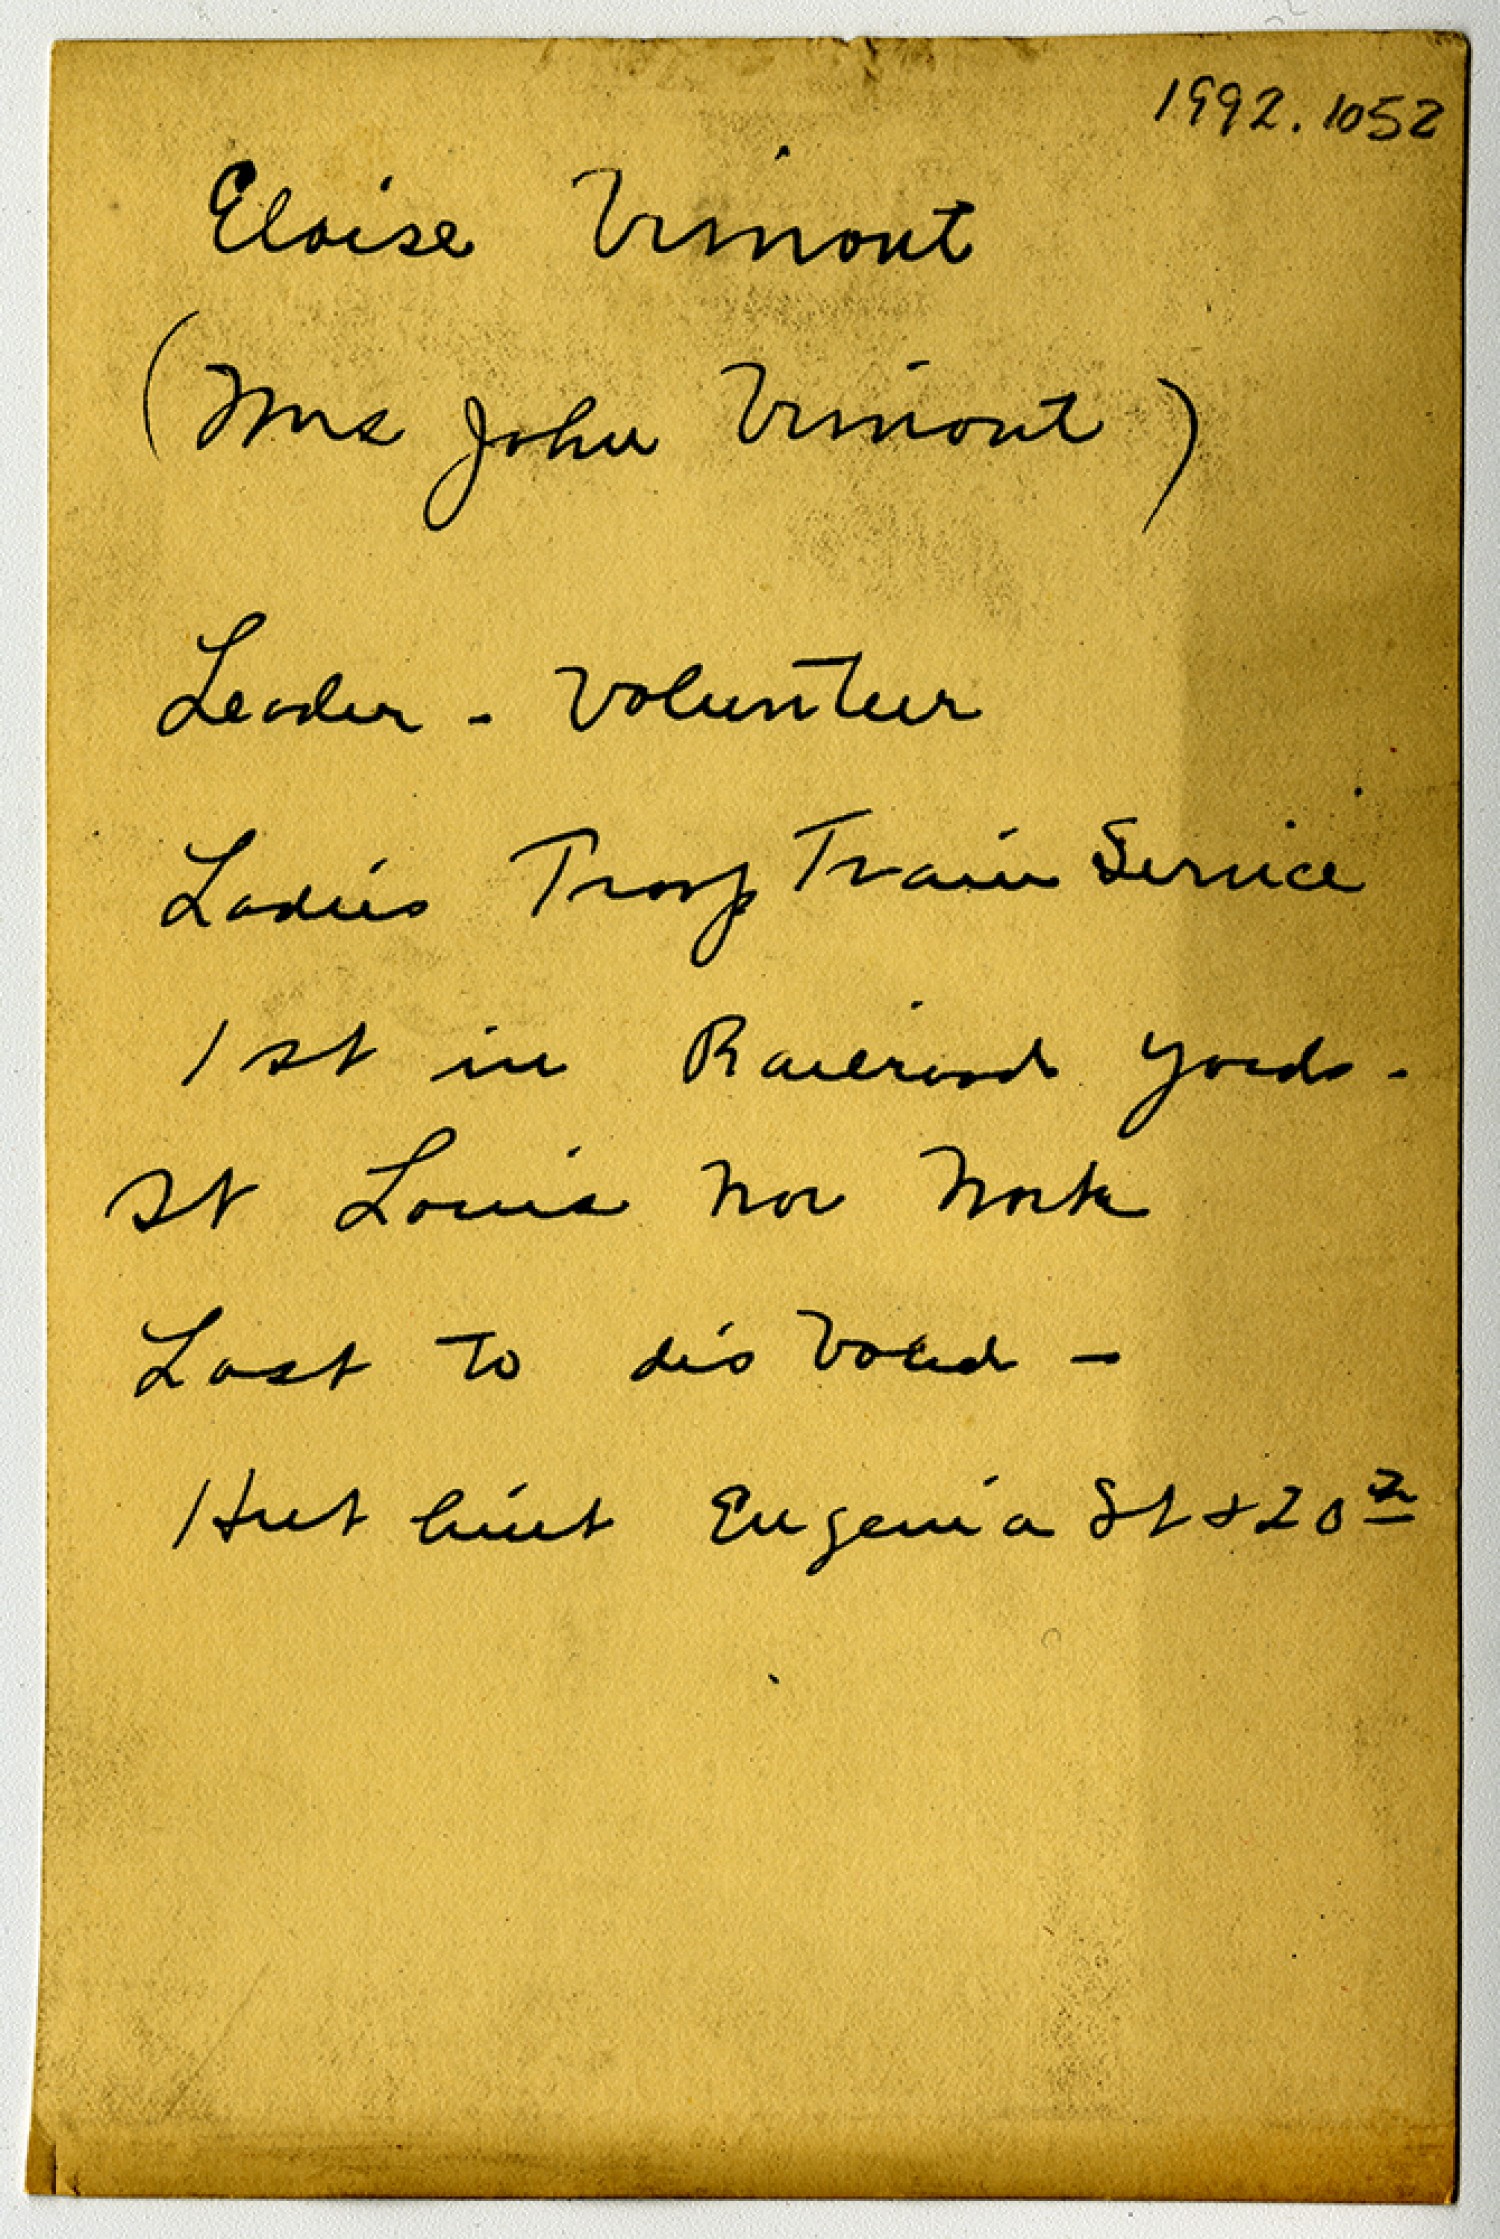 1992.1052
Eloise Vimont
(Mrs John Vimont)
Leader - Volunteer
Ladies Troop Train Service
1st in Railroad yards -
St Louis War Work
Last to dis band -
Hut built Eugenia St + 20th